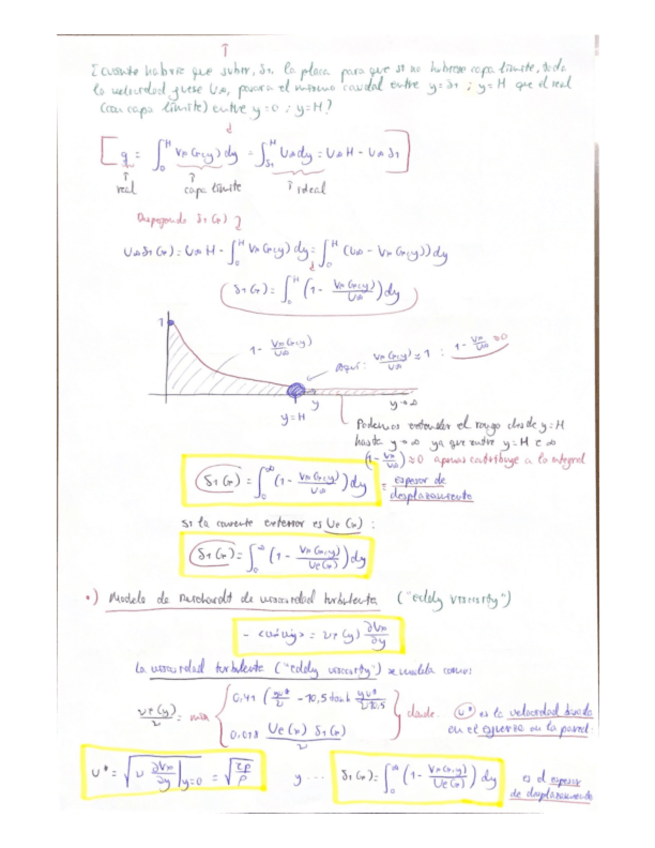 ¿Cuánto habría que subir, δ₁, la placa para que si no hubiese capa límite, toda
la velocidad fuese U∞, pasara el mismo caudal entre y=δ₁ ; y=H que el real
(con capa límite) entre y=0 ; y=H?
q = ∫₀^H Vx(x,y) dy = ∫_δ₁^H U∞ dy = U∞ H - U∞ δ₁
real capa límite ideal
Despejando δ₁(x)
U∞ δ₁(x) = U∞ H - ∫₀^H Vx(x,y) dy = ∫₀^H (U∞ - Vx(x,y)) dy
δ₁(x) = ∫₀^H (1 - Vx(x,y)/U∞) dy
1
1 - Vx(x,y)/U∞
Aquí: Vx(x,y)/U∞ ≈ 1 : 1 - Vx/U∞ ≈ 0
y=H y y→∞
Podemos extender el rango desde y=H
hasta y→∞ ya que entre y=H e ∞
(1 - Vx/U∞) ≈ 0 apenas contribuye a la integral
δ₁(x) = ∫₀^∞ (1 - Vx(x,y)/U∞) dy = espesor de
desplazamiento
Si la corriente exterior es Ue(x) :
δ₁(x) = ∫₀^∞ (1 - Vx(x,y)/Ue(x)) dy
•) Modelo de de viscosidad turbulenta ("eddy viscosity")
- <u'xu'y> = νT(y) ∂Vx/∂y
La viscosidad turbulenta ("eddy viscosity") se modela como:
νT(y)/ν = min { 0,41 (yu*/ν - 10,5 tanh yu*/ν10,5
0,018 Ue(x) δ₁(x)/ν } donde u* es la velocidad basada
en el esfuerzo en la pared.
u* = √(ν ∂Vx/∂y |y=0) = √(τp/ρ) y ... δ₁(x) = ∫₀^∞ (1 - Vx(x,y)/Ue(x)) dy es el espesor
de desplazamiento